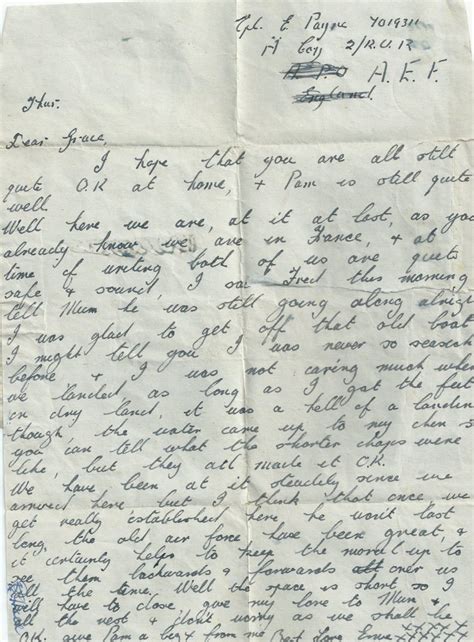 Cpl. E. Payne 7019311
Coy 2/R.U.R
A P O A. E. F.
England.
Thur.
Dear Grace,
I hope that you are all still
quite O.K at home, + Pam is still quite
well.
Well here we are, at it at last, as you
already know we are in France, + at
time of writing both of us are quite
safe + sound, I saw Fred this morning,
tell Mum he was still going along alright
I was glad to get off that old boat
I might tell you I was never so seasick
before + I was not caring much when
we landed, as long as I got the feet
on dry land, it was a hell of a landing
though the water came up to my chin so
you can tell what the shorter chaps were
like, but they all made it O.K.
We have been at it steadily since we
arrived here but I think that once we
get really established here he won't last
long, the old air force have been great, +
it certainly helps to keep the moral up to
see them backwards + forwards over us
all the time. Well the space is short, so I
will have to close, give my love to Mum +
all the rest + don't worry as we shall be
O.K. give Pam a big x from me